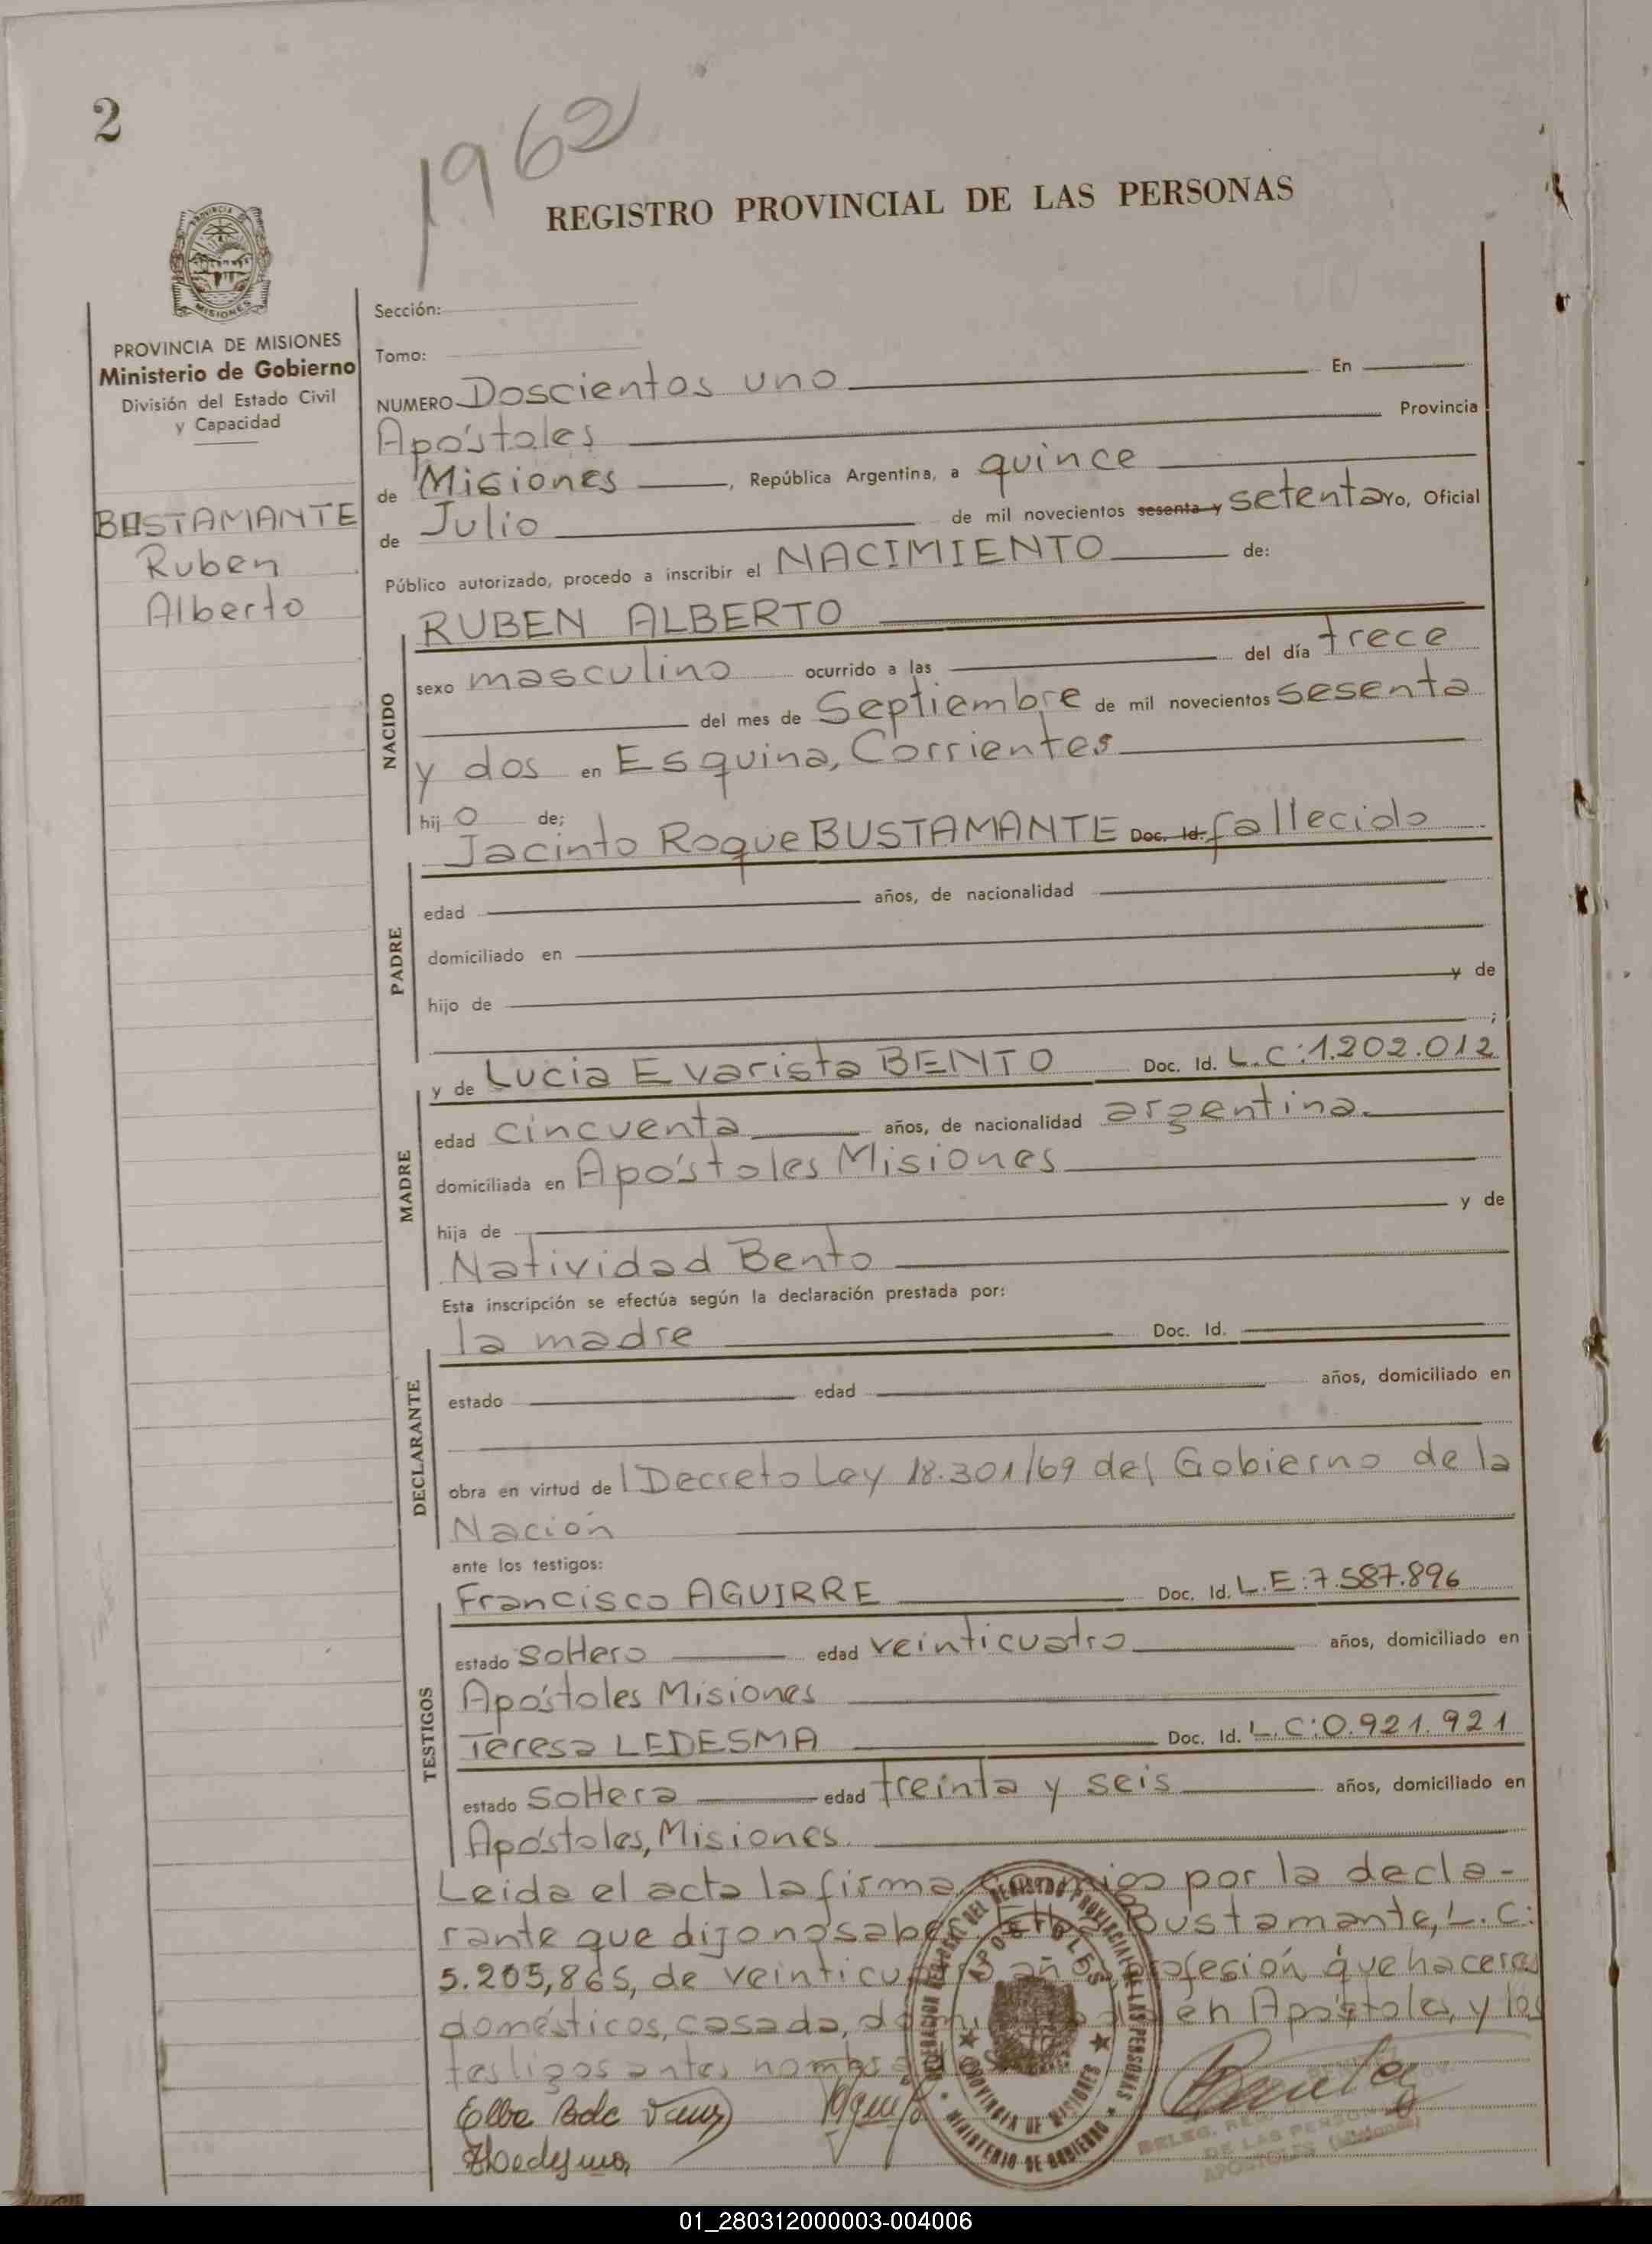 2
1962
REGISTRO PROVINCIAL DE LAS PERSONAS
MISIONES
PROVINCIA DE MISIONES
Ministerio de Gobierno
División del Estado Civil
y Capacidad
BUSTAMANTE
Ruben
Alberto
Sección:
Tomo:
NUMERO Doscientos uno En
Apóstoles Provincia
de Misiones, República Argentina, a quince
de Julio de mil novecientos sesenta y setenta Yo, Oficial
Público autorizado, procedo a inscribir el NACIMIENTO de:
NACIDO
RUBEN ALBERTO
sexo masculino ocurrido a las del día trece
del mes de Septiembre de mil novecientos sesenta
y dos en Esquina, Corrientes
hij o de;
PADRE
Jacinto Roque BUSTAMANTE Doc. Id. fallecido
edad años, de nacionalidad
domiciliado en
hijo de y de
;
MADRE
y de Lucia Evarista BENTO Doc. Id. L.C:1.202.012
edad cincuenta años, de nacionalidad argentina.
domiciliada en Apóstoles Misiones
hija de y de
Natividad Bento
Esta inscripción se efectúa según la declaración prestada por:
DECLARANTE
la madre Doc. Id.
estado edad años, domiciliado en
obra en virtud de l Decreto Ley 18.301/69 del Gobierno de la
Nación
ante los testigos:
TESTIGOS
Francisco AGUIRRE Doc. Id. L.E:7.587.896
estado soltero edad veinticuatro años, domiciliado en
Apóstoles Misiones
Teresa LEDESMA Doc. Id. L.C:0.921.921
estado soltera edad treinta y seis años, domiciliado en
Apóstoles, Misiones.
Leida el acta la firma por la decla-
rante que dijo no saber Elba Bustamante, L.C:
5.205,865, de años profesión quehaceres
domésticos, casada, en Apóstoles, y los
testigos antes
APOSTOLES
PROVINCIA DE MISIONES
MINISTERIO DE GOBIERNO
DELEG. REG.
DE LAS PERSONAS
APOSTOLES (Misiones)
01_280312000003-004006